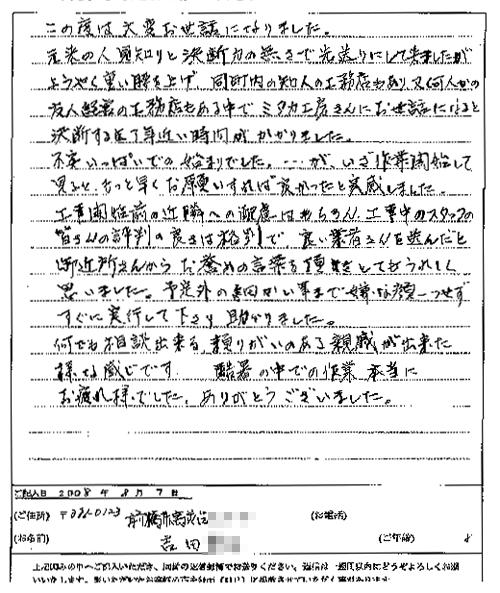 この度は大変お世話になりました。
元来の人見知りと決断力の無さで先送りにして来ましたが
ようやく重い腰を上げ、同町内の知人の工務店もあり又何人かの
友人経営の工務店もある中でミタカ工房さんにお世話になると
決断するまで年近い時間がかかりました。
不安いっぱいでの始まりでした。…が、いざ作業開始して
見ると、もっと早くお願いすれば良かったと実感しました。
工事開始前の近隣への配慮はもちろん、工事中のスタッフの
皆さんの評判の良さは格別で、良い業者さんを選んだと
御近所さんからお誉めの言葉を頂きとてもうれしく
思いました。予定外の細かい事まで嫌な顔一つせず
すぐに実行して下さり助かりました。
何でも相談出来る、頼りがいのある親戚が出来た
様な感じです。 酷暑の中での作業 本当に
お疲れ様でした。ありがとうございました。
ご記入日 2008 年 8 月 7 日
(ご住所) 〒371-0123 前橋市 (お電話)
(お名前) 吉田 (ご年齢) 才